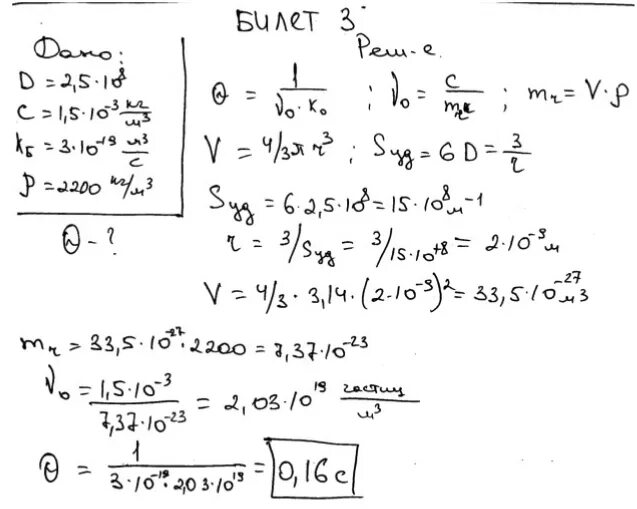 БИЛЕТ 3
Дано:
D = 2,5·10⁸
C = 1,5·10⁻³ кг/м³
K_Б = 3·10⁻¹⁹ м³/с
ρ = 2200 кг/м³
Θ - ?
Реш-е.
Θ = 1/(ν₀·K₀) ; ν₀ = C/m ; m₂ = V·ρ
V = 4/3π r³ ; S уд = 6 D = 3/r
S уд = 6·2,5·10⁸ = 15·10⁸ м⁻¹
r = 3/S уд = 3/15·10⁺⁸ = 2·10⁻⁹ м
V = 4/3 · 3,14·(2·10⁻⁹)² = 33,5·10⁻²⁷ м³
m₂ = 33,5·10⁻²⁷·2200 = 7,37·10⁻²³
ν₀ = 1,5·10⁻³/7,37·10⁻²³ = 2,03·10¹⁹ частиц/м³
Θ = 1/(3·10⁻¹⁹·2,03·10¹⁹) = 0,16 с